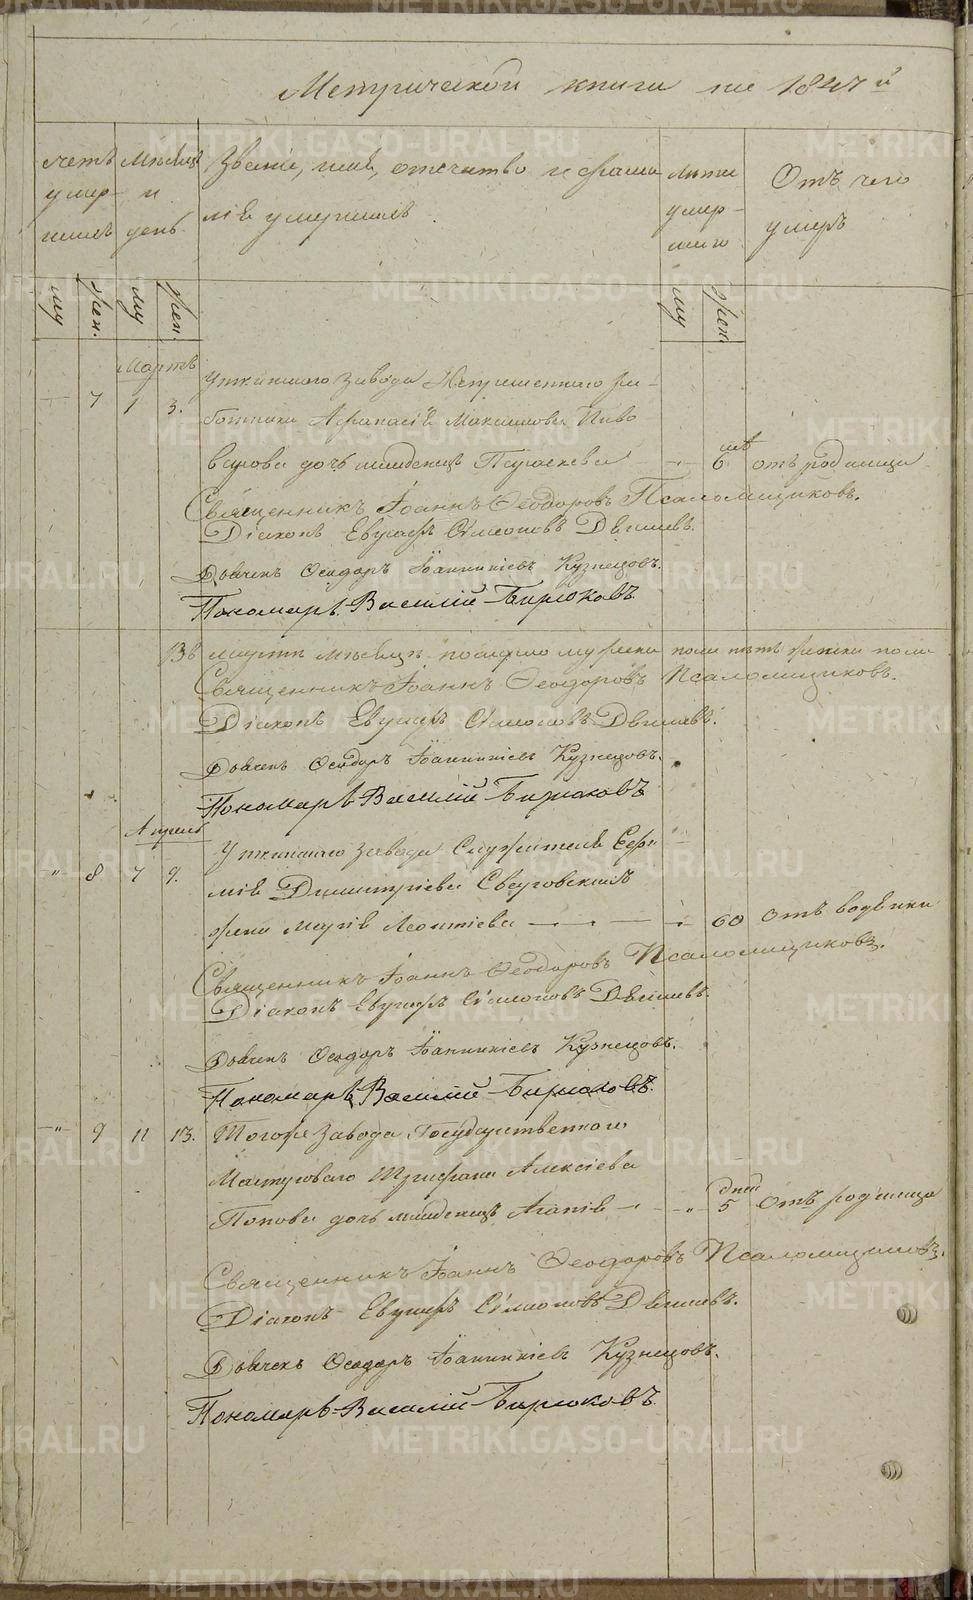 Метрической книги на 1847 й
Счетъ умер-шихъ
Мѣсяцъ и день
Званіе, имя, отечество и фами-
лія умершихъ.
Лѣта умер-шаго
Отъ чего умеръ
му жен. му жен. му жен.
Мартъ
Уткинскаго завода Непремѣннаго ра-
7 1 3. ботника Афанасія Максимова Пиво
варова дочь младенецъ Параскева 6 отъ родимца
Священникъ Іоаннъ Ѳеодоровъ Псаломщиковъ.
Діаконъ Евграфъ Сѵмеоновъ
Дьячекъ Ѳеодоръ Іоанникіевъ Кузнецовъ.
Пономарь Василій Бирюковъ
Въ мартѣ мѣсяцѣ померло мужеска пола женска пола
Священникъ Іоаннъ Ѳеодоровъ Псаломщиковъ.
Діаконъ Евграфъ Сѵмеоновъ
Дьячекъ Ѳеодоръ Іоанникіевъ Кузнецовъ.
Пономарь Василій Бирюковъ
Апрель
Уткинскаго завода Служителя
8 7 9. Димитріева
жена Марія Леонтіева 60 отъ водянки
Священникъ Іоаннъ Ѳеодоровъ Псаломщиковъ.
Діаконъ Евграфъ Сѵмеоновъ
Дьячекъ Ѳеодоръ Іоанникіевъ Кузнецовъ.
Пономарь Василій Бирюковъ.
9 11 13. Тогоже завода Государственнаго
Мастероваго Трифана Алексіева
Попова дочь младенецъ Агапія дней 5 отъ родимца
Священникъ Іоаннъ Ѳеодоровъ Псаломщиковъ.
Діаконъ Евграфъ Сѵмеоновъ
Дьячекъ Ѳеодоръ Іоанникіевъ Кузнецовъ.
Пономарь Василій Бирюковъ.
METRIKI.GASO-URAL.RU